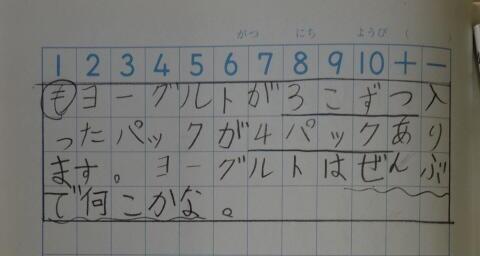 がつ にち ようび (
1 2 3 4 5 6 7 8 9 10 + −
も ヨーグルトが3こずつ入
ったパックが4パックあり
ます。ヨーグルトはぜんぶ
で何こかな。